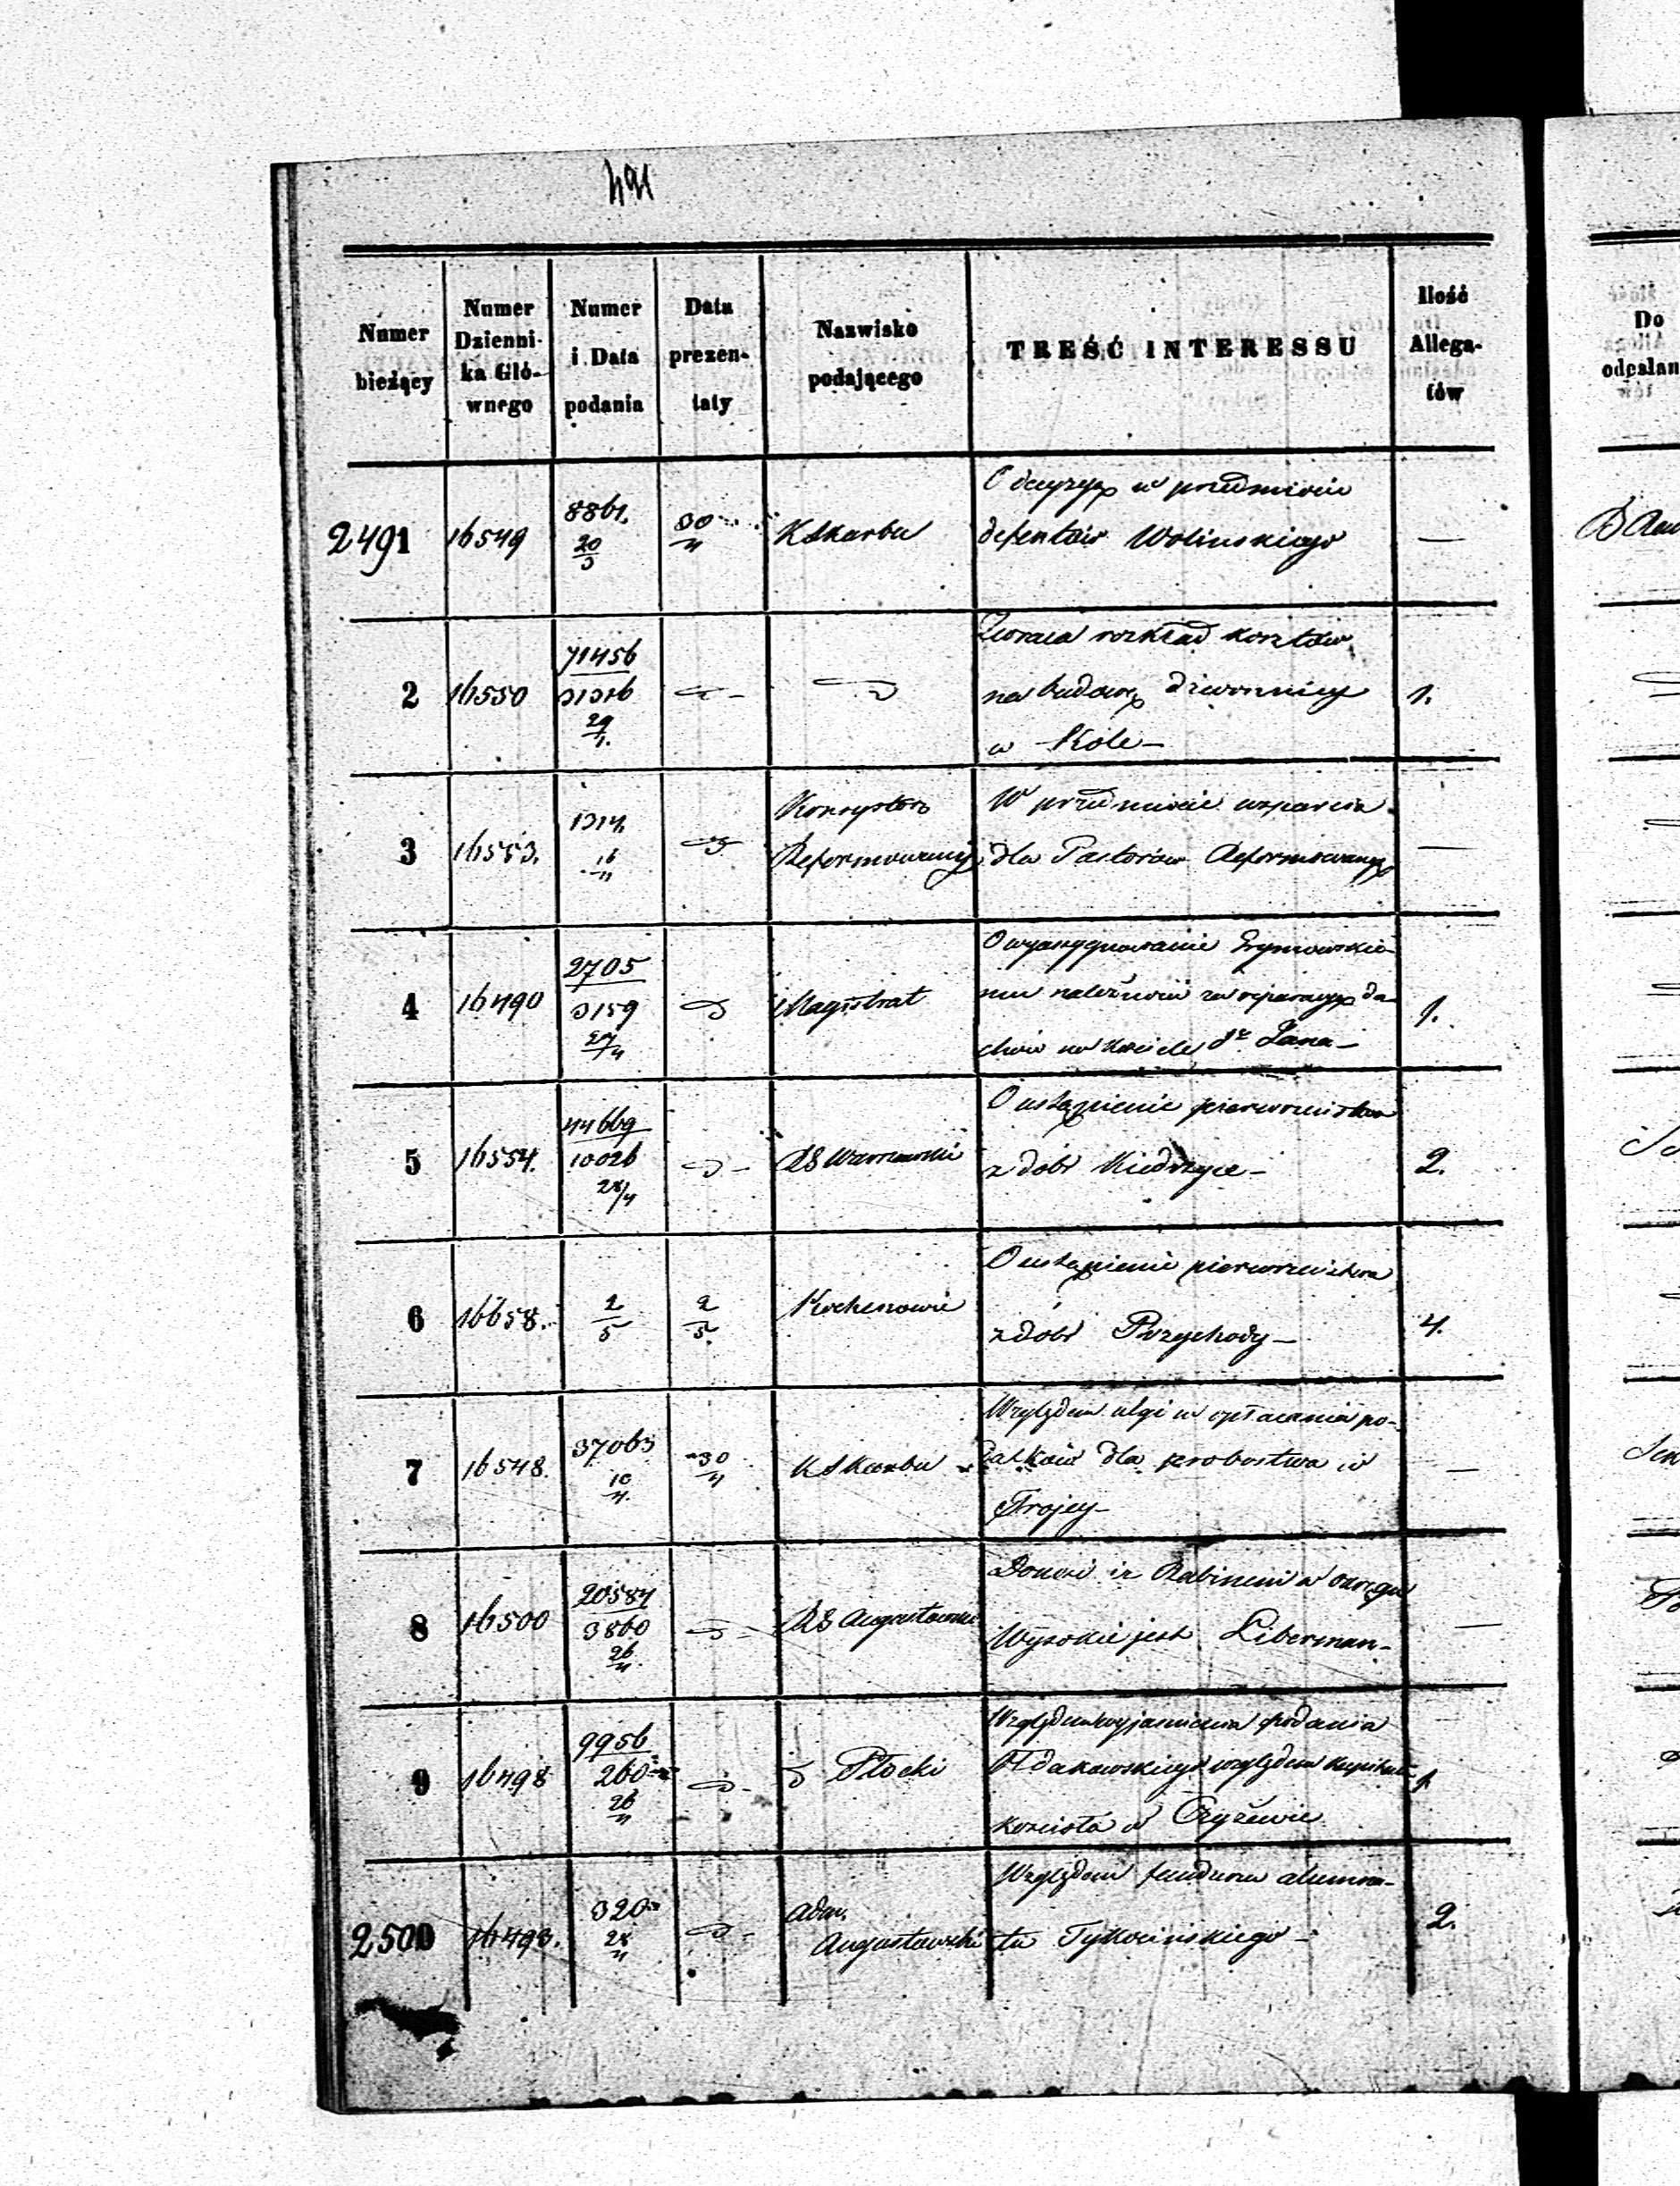 491
Numer bieżący
Numer Dzienni- ka Głó- wnego
Numer i Data podania
Data prezen- taty
Nazwisko podającego
TREŚĆ INTERESSU
Ilość Allega- tów
Do odesłan
2491 16549 8861. 20/3 30/4 K Skarbu
O decyzyę w przedmiocie
defektów Wolinskiego —
2 16550 71456 31316 29/1.
Zwraca rozkład kosztów
na budowę dzwonnicy 1.
w Kole —
3 16553. 1314. 16/4
Konsystorz
Reformowany
W przedmiocie wsparcia
dla Pastorów Reformowanych —
4 16490 2705 3159 27/4 Magistrat
O wyasygnowanie
mu należności za reparacyę da-
chów na kościele Sgo Jana — 1.
5 16554. 44669 10026 28/4 RG Warszawski
O ustąpienie pierwszeństwa
z dobr Kiedrzyce — 2.
6 16658. 2/5 2/5.
O ustąpienie pierwszeństwa
z dobr Przychody — 4.
7 16548. 37063 10/4. 30/4 K Skarbu
Względem ulgi w opłacaniu po-
datków dla probostwa w —
Trojcy —
8 16500 20584 3860 26/4. RG Augustowski
Donosi iż Rabinem w okręgu
Wysokie jest Liberman — —
9 16498 9956 260 26/4 Płocki
Względem wyjasnienia podania
względem
kościoła w Czyżewie 1
2500 16493. 320 28/4
Adm.
Augustowski
Względem funduszu alumna-
tu Tykocinskiego — 2.